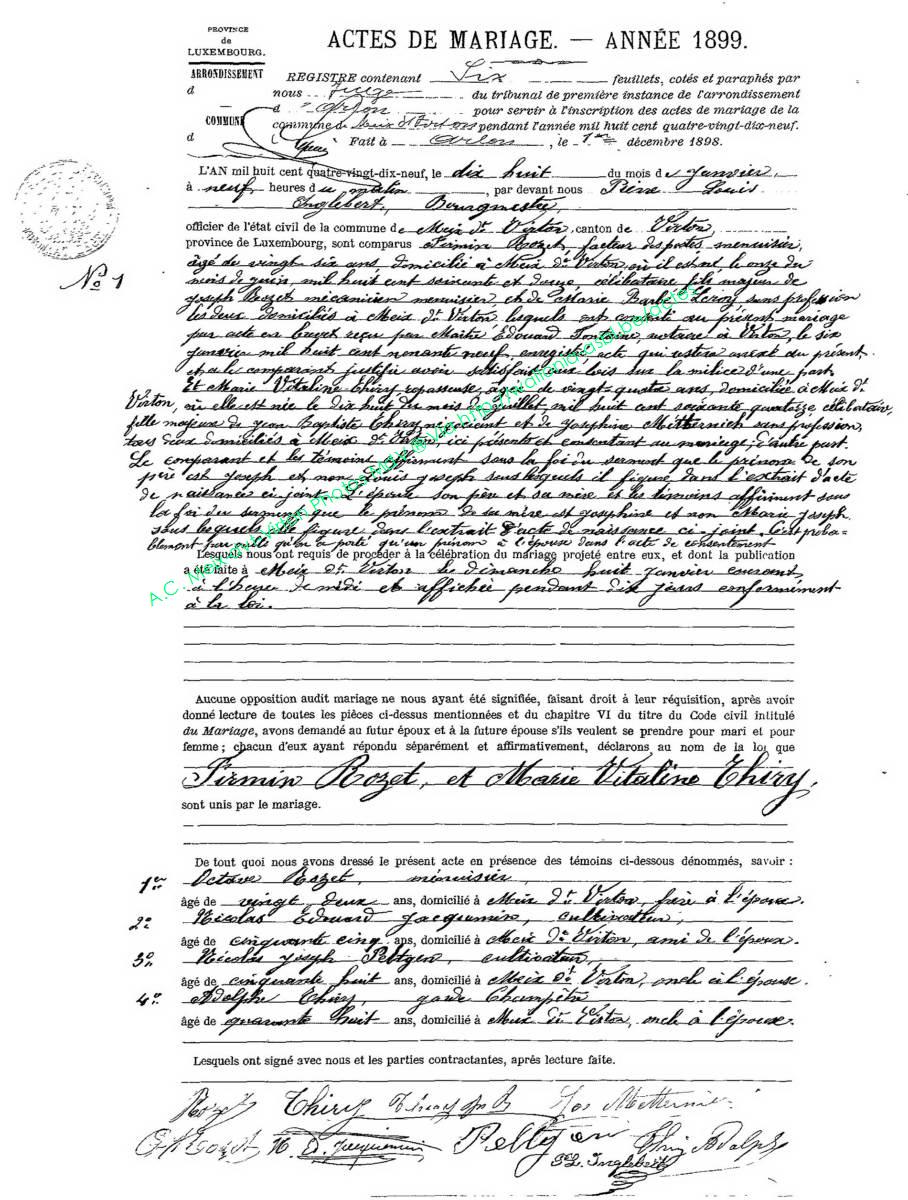 PROVINCE
de
LUXEMBOURG.
ARRONDISSEMENT
d
COMMUNE
d
ACTES DE MARIAGE. — ANNÉE 1899.
REGISTRE contenant Six feuillets, cotés et paraphés par
nous Juge du tribunal de première instance de l'arrondissement
d'Arlon pour servir à l'inscription des actes de mariage de la
commune de Meix dt Virton pendant l'année mil huit cent quatre-vingt-dix-neuf.
Fait à Arlon, le 1er décembre 1898.
L'AN mil huit cent quatre-vingt-dix-neuf, le dix huit du mois de Janvier,
à neuf heures du matin, par devant nous Pierre Louis
Inglebert, Bourgmestre,
officier de l'état civil de la commune de Meix dt Virton, canton de Virton,
province de Luxembourg, sont comparus Firmin Rozet, facteur des postes menuisier,
No 1
âgé de vingt six ans, domicilié à Meix dt Virton, où il est né, le onze du
mois de juin, mil huit cent soixante et douze, célibataire fils majeur de
Joseph Rozet mécanicien menuisier et de Marie Leroy sans profession
les deux domiciliés à Meix dt Virton lesquels ont consenti au présent mariage
par acte en brevet reçu par Maître Edouard Fontaine, notaire à Virton, le six
janvier mil huit cent nonante neuf, enregistré acte qui restera annexé au présent.
et a le comparant justifié avoir satisfait aux lois sur la milice d'une part
Et Marie Vitaline Thiry repasseuse, âgée de vingt quatre ans, domiciliée à Meix dt
Virton, où elle est née le dix huit du mois de juillet mil huit cent soixante quatorze, célibataire,
fille majeure de Jean Baptiste Thiry négociant et de Joséphine Metternich sans profession,
tous deux domiciliés à Meix dt Virton, ici présents et consentant au mariage; d'autre part.
Le comparant et les témoins affirment sous la foi du serment que le prénom de son
père est Joseph et non Louis Joseph sous lesquels il figure dans l'extrait d'acte
de naissance ci-joint. L'épouse son père et sa mère et les témoins affirment sous
la foi du serment que le prénom de sa mère est Joséphine et non Marie Joseph
sous lesquels elle figure dans l'extrait d'acte de naissance ci-joint. C'est proba-
blement par oubli qu'on a porté qu'un prénom à l'épouse dans l'acte de consentement
Lesquels nous ont requis de procéder à la célébration du mariage projeté entre eux, et dont la publication
a été faite à Meix dt Virton le dimanche huit janvier courant,
à l'heure de midi et affichée pendant dix jours conformément
à la loi.
A.C. Meix dvt Virton
Aucune opposition audit mariage ne nous ayant été signifiée, faisant droit à leur réquisition, après avoir
donné lecture de toutes les pièces ci-dessus mentionnées et du chapitre VI du titre du Code civil intitulé
du Mariage, avons demandé au futur époux et à la future épouse s'ils veulent se prendre pour mari et pour
femme ; chacun d'eux ayant répondu séparément et affirmativement, déclarons au nom de la loi que
Firmin Rozet, et Marie Vitaline Thiry,
sont unis par le mariage.
De tout quoi nous avons dressé le présent acte en présence des témoins ci-dessous dénommés, savoir :
1er Octave Rozet, menuisier,
âgé de vingt deux ans, domicilié à Meix dt Virton, frère à l'époux.
2e Nicolas Edouard Jacquemin, cultivateur,
âgé de cinquante cinq ans, domicilié à Meix dt Virton, ami de l'époux.
3e Nicolas Joseph Peltgen, cultivateur,
âgé de cinquante huit ans, domicilié à Meix dt Virton, oncle à l'épouse.
4e Adolphe Thiry, garde Champêtre
âgé de quarante huit ans, domicilié à Meix dt Virton, oncle à l'épouse.
Lesquels ont signé avec nous et les parties contractantes, après lecture faite.
Rozet Thiry Thiry Jos Metternich
N. D. Jacquemin Peltgen Thiry Adolphe
P.L. Inglebert